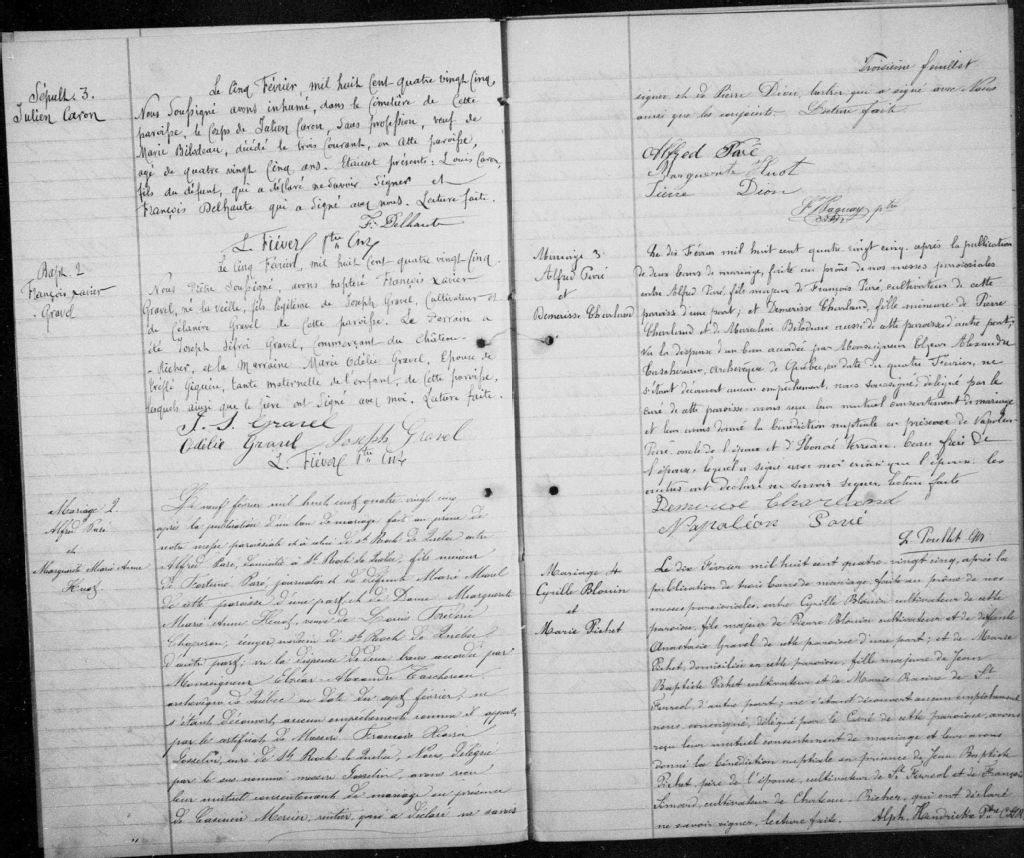 Sépult. 3.
Julien Caron
Le cinq Février, mil huit Cent quatre vingt Cinq,
Nous Soussigné avons inhumé, dans le Cimetière de Cette
paroisse, le Corps de Julien Caron, Sans profession, veuf de
Marie Bilodeau, décédé le trois Courant, en cette paroisse,
agé de quatre vingt Cinq ans. Etaient présents: Louis Caron,
fils du défunt, qui a déclaré ne savoir Signer et
François Delhaute qui a Signé avec nous. Lecture faite.
F. Delhaute
L. Fiévez Ptre Curé
Bapt. 2
François Xavier
Gravel
Le Cinq Février, mil huit Cent quatre vingt Cinq.
Nous Prêtre Soussigné, avons baptisé François Xavier
Gravel, né la veille, fils légitime de Joseph Gravel, Cultivateur et
de Célanire Gravel de Cette paroisse. Le Parrain a
été Joseph Gravel, Commerçant du Château-
-Richer, et la Marraine Marie Odélie Gravel, Epouse de
Giguère, tante maternelle de l'enfant, de Cette paroisse,
lesquels ainsi que le père ont Signé avec moi. Lecture faite.
J. S. Gravel
Odélie Gravel Joseph Gravel
L. Fiévez Ptre Curé
Mariage 2.
Alfred Paré
et
Marguerite Marie Anne
Huot
Le neuf février mil huit cent quatre vingt cinq
après la publication d'un ban de mariage fait au prône de
notre messe paroissiale et à celui de St Roch de Québec entre
Alfred Paré, domicilié à St Roch de Québec, fils mineur
de Fortuné Paré, journalier et de défunte Marie
de cette paroisse d'une part et de Dame Marguerite
Marie Anne Huot, veuve de Louis
écuyer de St Roch de Québec
d'autre part; vu la dispense de deux bans accordée par
Monseigneur Elzéar Alexandre Taschereau
archevêque de Québec en date du sept février; ne
s'étant découvert aucun empêchement comme il appert
par le certificat de Messire François
Gosselin, curé de St Roch de Québec, Nous, délégué
par le sus nommé messire Gosselin, avons reçu
leur mutuel consentement de mariage en présence
de Casimir Mercier, rentier, qui a déclaré ne savoir
Troisième feuillet
signer et de Pierre Dion, qui a signé avec Nous
ainsi que les conjoints. Lecture faite
Alfred Paré
Marguerite Huot
Pierre Dion
ptre
Mariage 3
Alfred Paré
et
Demerisse Charland
Le dix Février mil huit cent quatre vingt cinq, après la publication
de deux bans de mariage, faite au prône de nos messes paroissiales
entre Alfred Paré, fils majeur de François Paré, cultivateur de cette
paroisse d'une part; et Demerisse Charland, fille mineure de Pierre
Charland et de Marceline Bilodeau aussi de cette paroisse d'autre part;
Vu la dispense d'un ban accordée par Monseigneur Elzéar Alexandre
Taschereau, Archevêque de Québec, en date du quatre Février, ne
s'étant découvert aucun empêchement, nous soussigné délégué par le
curé de cette paroisse avons reçu leur mutuel consentement de mariage
et leur avons donné la bénédiction nuptiale en présence de Napoléon
Paré, oncle de l'époux et d'Honoré Verreau, beau frère de
l'épouse, lequel a signé avec moi ainsi que l'épouse. les
autres ont déclaré ne savoir signer. Lecture faite
Demerise Charland
Napoléon Paré
Mariage 4
Cyrille Blouin
et
Marie Pichet
Le dix Février mil huit cent quatre vingt cinq, après la
publication de trois bans de mariage, faite au prône de nos
messes paroissiales, entre Cyrille Blouin cultivateur de cette
paroisse, fils majeur de Pierre Blouin cultivateur et de défunte
Anastasie Gravel de cette paroisse d'une part; et de Marie
Pichet, domiciliée en cette paroisse, fille majeure de Jean
Baptiste Pichet cultivateur et de Marie Racine de St
Ferreol, d'autre part; ne s'étant découvert aucun empêchement
nous soussigné, délégué par le Curé de cette paroisse, avons
reçu leur mutuel consentement de mariage et leur avons
donné la bénédiction nuptiale en présence de Jean Baptiste
Pichet, père de l'épouse, cultivateur de St Ferreol et de François
Simard, cultivateur de Château-Richer, qui ont déclaré
ne savoir signer, lecture faite. Alph. Hendrickx Ptre